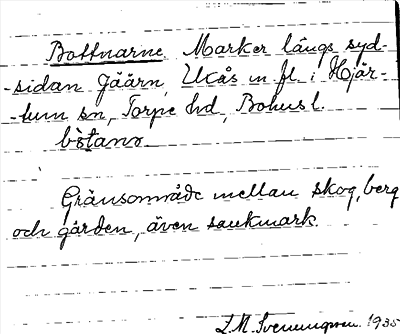 Bottnarne Marker längs syd-
-sidan Jäärn, Ukås m fl. i Hjär-
-tum sn, Torpe hd, Bohusl.
Gränsområde mellan skog, berg
och gärden, även sankmark.
L.M. Svenungsson. 1935